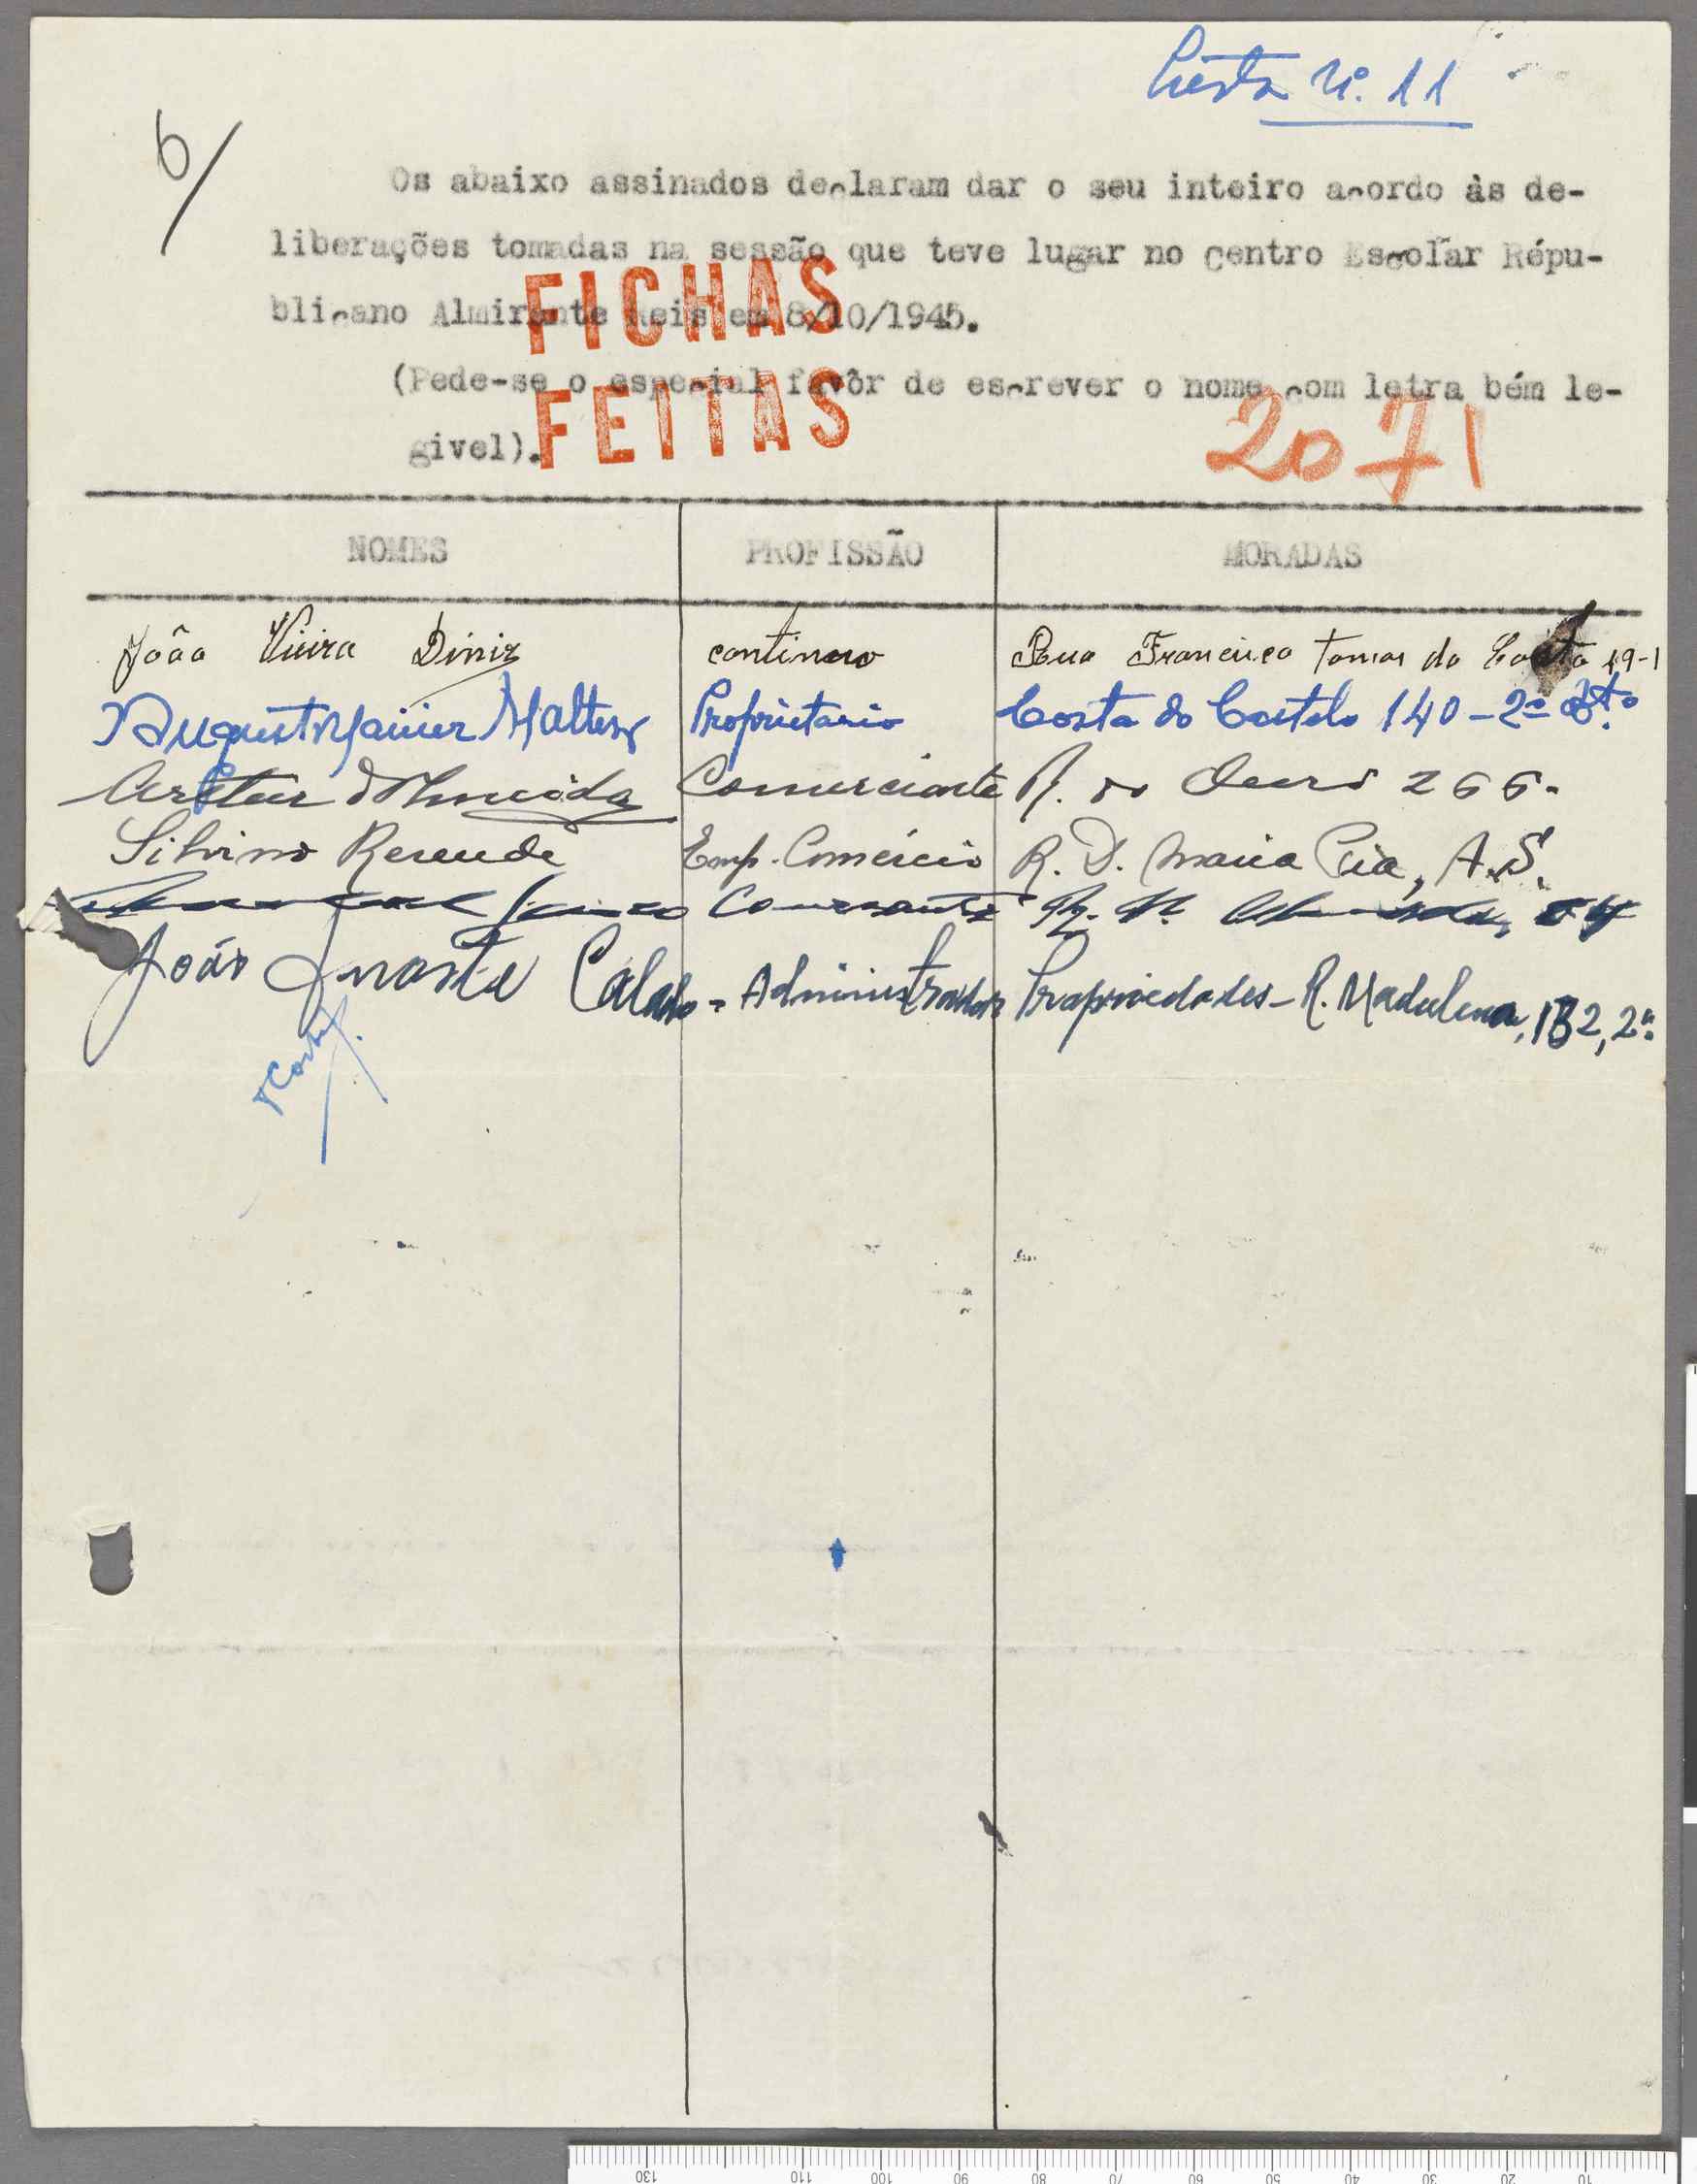 Lista nº. 11
6/
Os abaixo assinados declaram dar o seu inteiro acordo às de-
liberações tomadas na sessão que teve lugar no centro Escolar Répu-
blicano Almirante Reis em 8/10/1945.
FICHAS
(Pede-se o especial favôr de escrever o nome com letra bém le-
givel).
FEITAS
2071
NOMES PROFISSÃO MORADAS
João Vieira Diniz continuo Rua Francisco Tomas da Costa 19-1
Augusto Xavier Maltez Proprietario Costa do Castelo 140-2º
Artur d'Almeida Comerciante R. do Ouro 266.
Silvino Resende Emp. Comércio R. D. Maria Pia, A.S.
João Duarte Calado - Administrador Propriedades - R. Madalena, 182, 2º